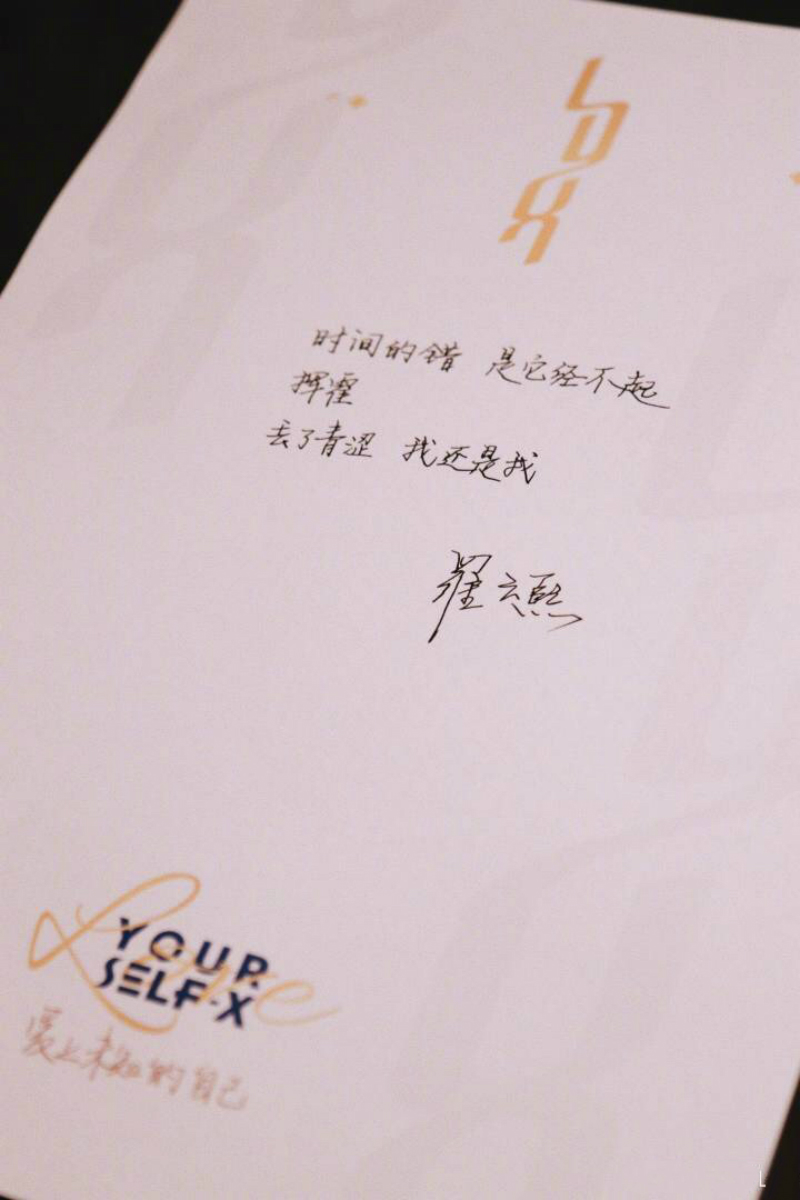 LDX
时间的错 是它经不起
挥霍
去了青涩 我还是我
翟云熙
Love
YOUR
SELF-X
爱上未知的自己
L